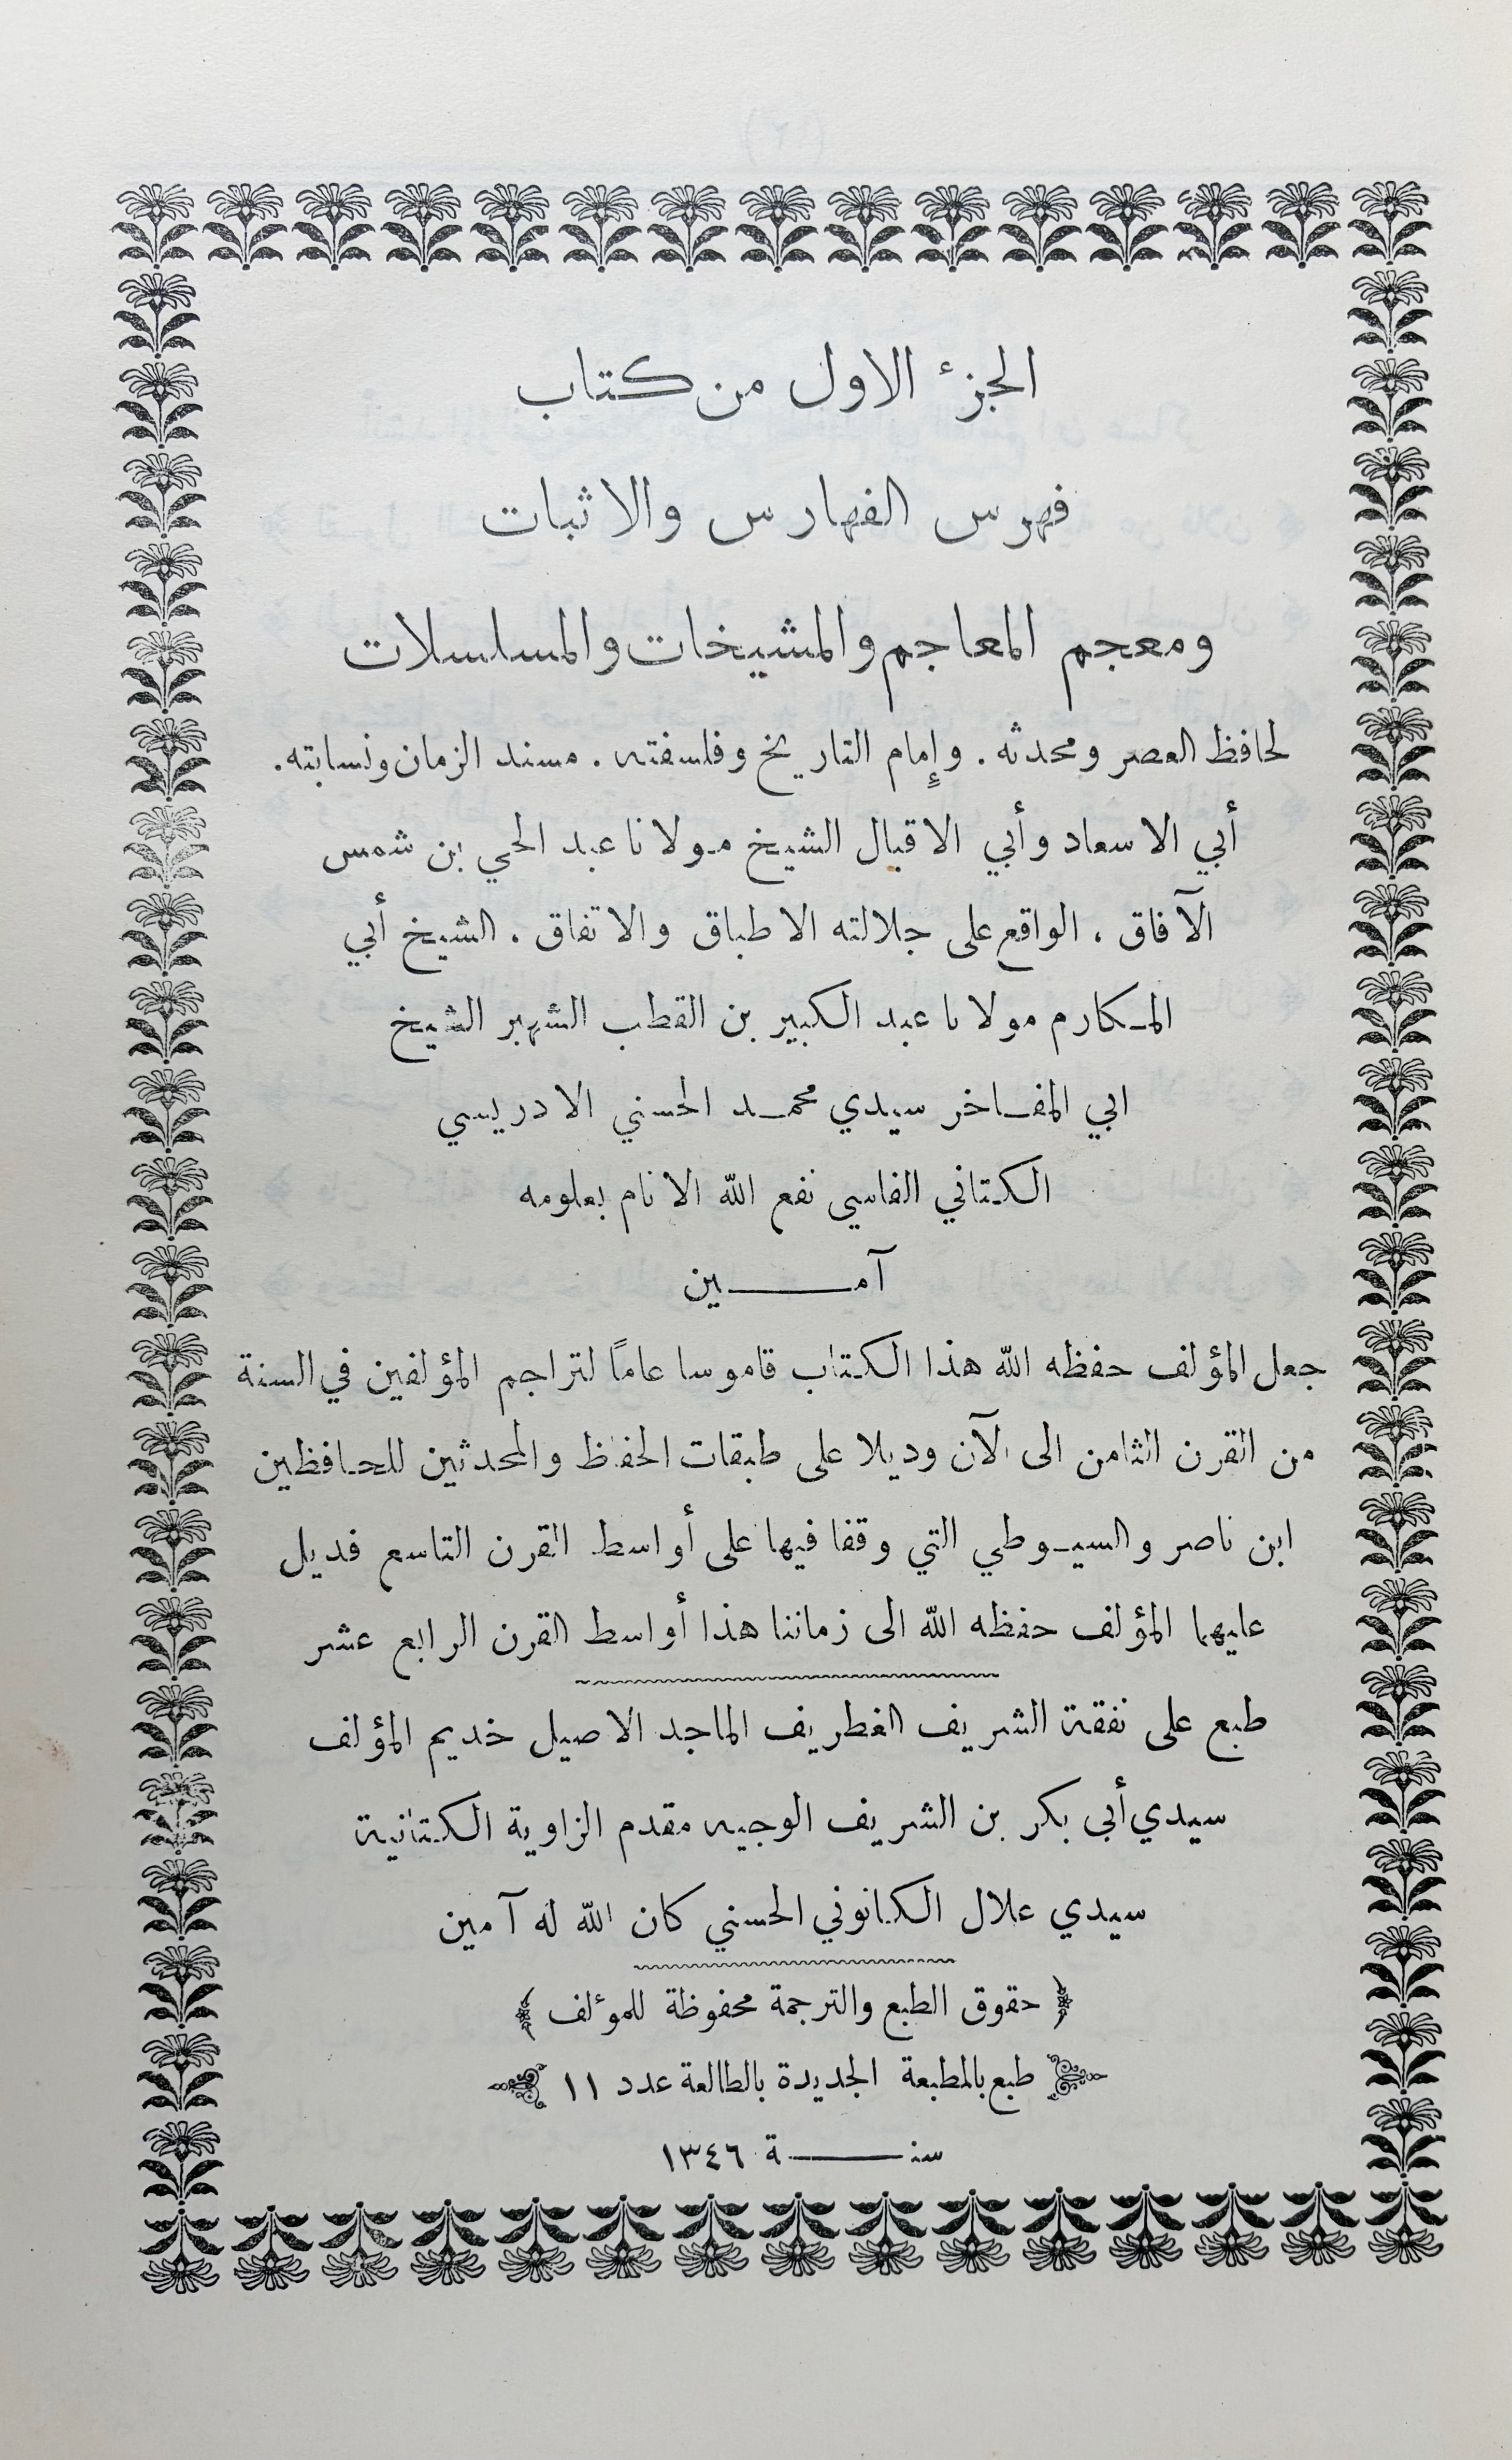 الجزء الاول من كتاب
فهرس الفهارس والاثبات
ومعجم المعاجم والمشيخات والمسلسلات
لحافظ العصر ومحدثه . وإمام التاريخ وفلسفته . مسند الزمان ونسابته .
أبي الاسعاد وأبي الاقبال الشيخ مولانا عبد الحي بن شمس
الآفاق . الواقع على جلالته الاطباق والاتفاق . الشيخ أبي
المكارم مولانا عبد الكبير بن القطب الشهير الشيخ
ابي المفاخر سيدي محمد الحسني الادريسي
الكتاني الفاسي نفع الله الانام بعلومه
آمــــين
جعل المؤلف حفظه الله هذا الكتاب قاموسا عاماً لتراجم المؤلفين في السنة
من القرن الثامن الى الآن وديلا على طبقات الحفاظ والمحدثين للحافظين
ابن ناصر والسيوطي التي وقفا فيها على أواسط القرن التاسع فديل
عليهما المؤلف حفظه الله الى زماننا هذا أواسط القرن الرابع عشر
طبع على نفقة الشريف الغطريف الماجد الاصيل خديم المؤلف
سيدي أبي بكر بن الشريف الوجيه مقدم الزاوية الكتانية
سيدي علال الكانوني الحسني كان الله له آمين
﴿ حقوق الطبع والترجمة محفوظة للمؤلف ﴾
طبع بالمطبعة الجديدة بالطالعة عدد ١١
سنــــة ١٣٤٦